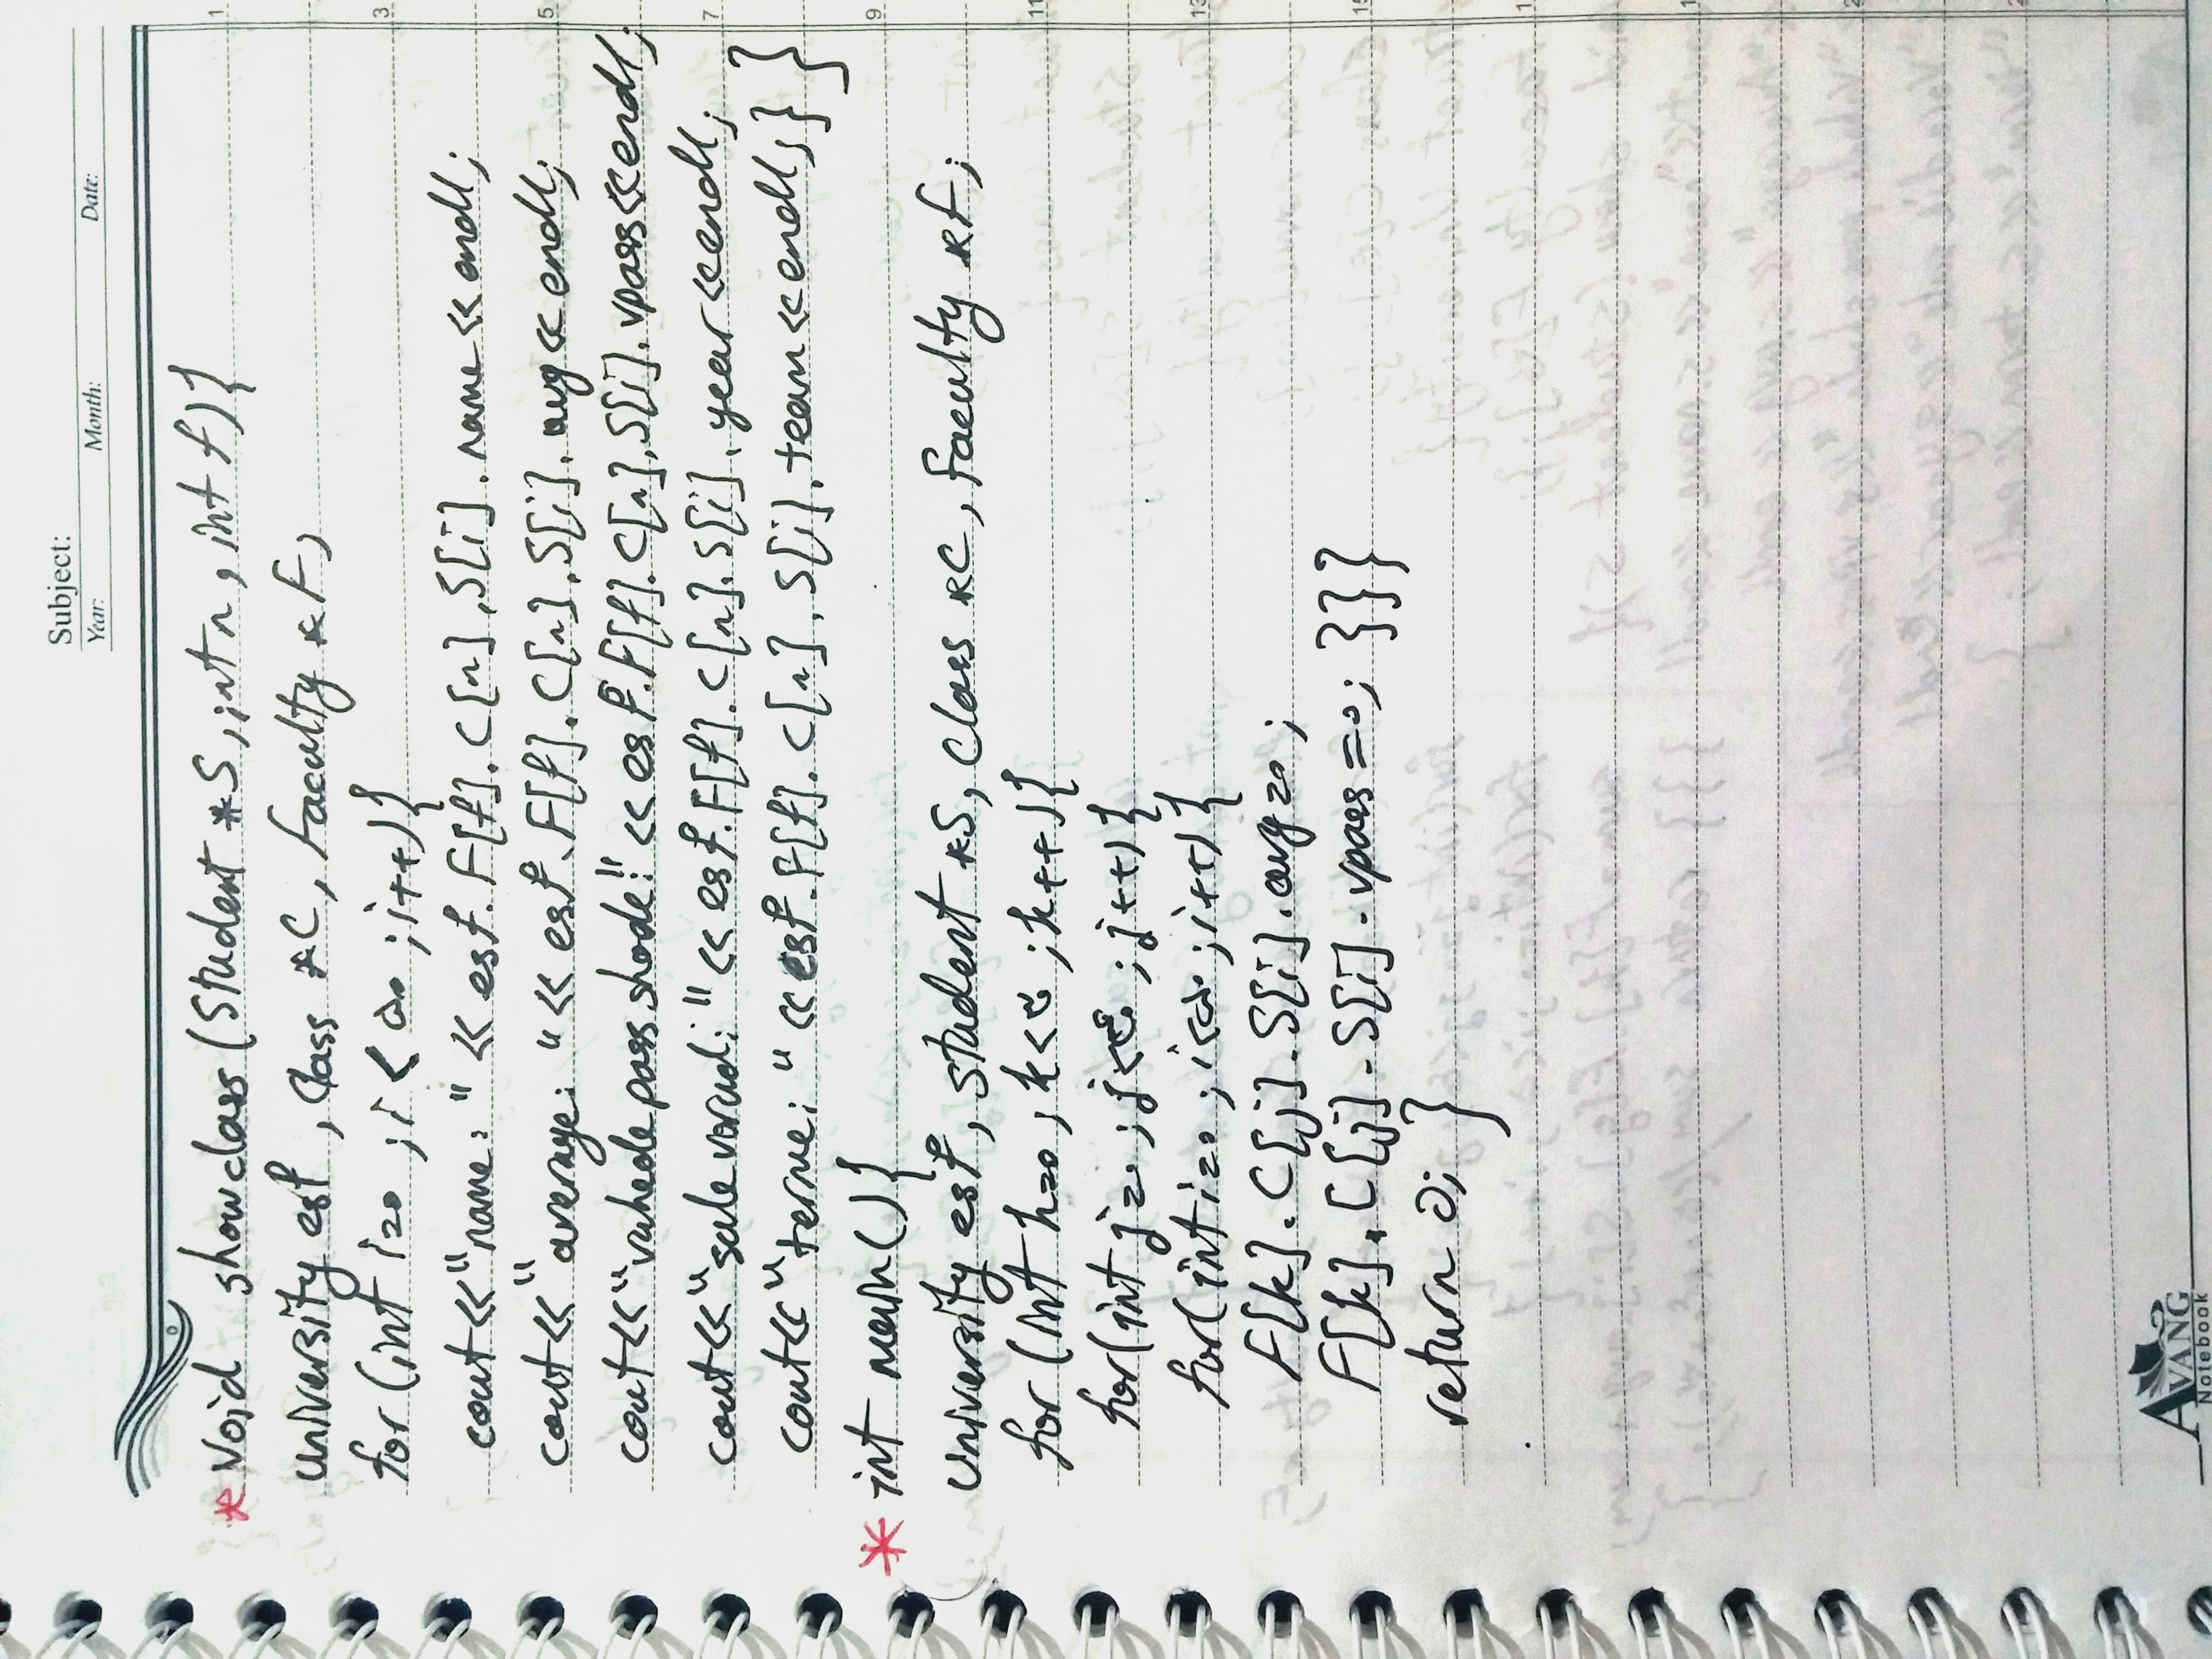 Subject:
Year: Month: Date:
* Void showclass (Student *S, int n, int f){
University esf, Class *C, Faculty *F,
for (int i=0 ; i < ۵۰ ; i++){
cout<<"name: " << esf.F[f].C[n].S[i].name<<endl;
cout<<" average: "<< esf.F[f].C[n].S[i].avg<<endl;
cout<<"vahede pass shode:"<< esf.F[f].C[n].S[i].vpass<<endl;
cout<<"sale vorud: "<< esf.F[f].C[n].S[i].year<<endl;
cout<<"terme: "<<esf.F[f].C[n].S[i].team<<endl;}}
* int main(){
University esf, student *S, Class *C, Faculty *F;
for (int k=0 ; k< ; k++){
for(int j=0 ; j< ; j++){
for(int i=0 ; i<۵۰ ; i++){
F[k].C[j].S[i].avg=0;
F[k].C[j].S[i].vpass==0; }}}
return 0; }
1
3
5
7
9
11
13
15
AVANG
Notebook